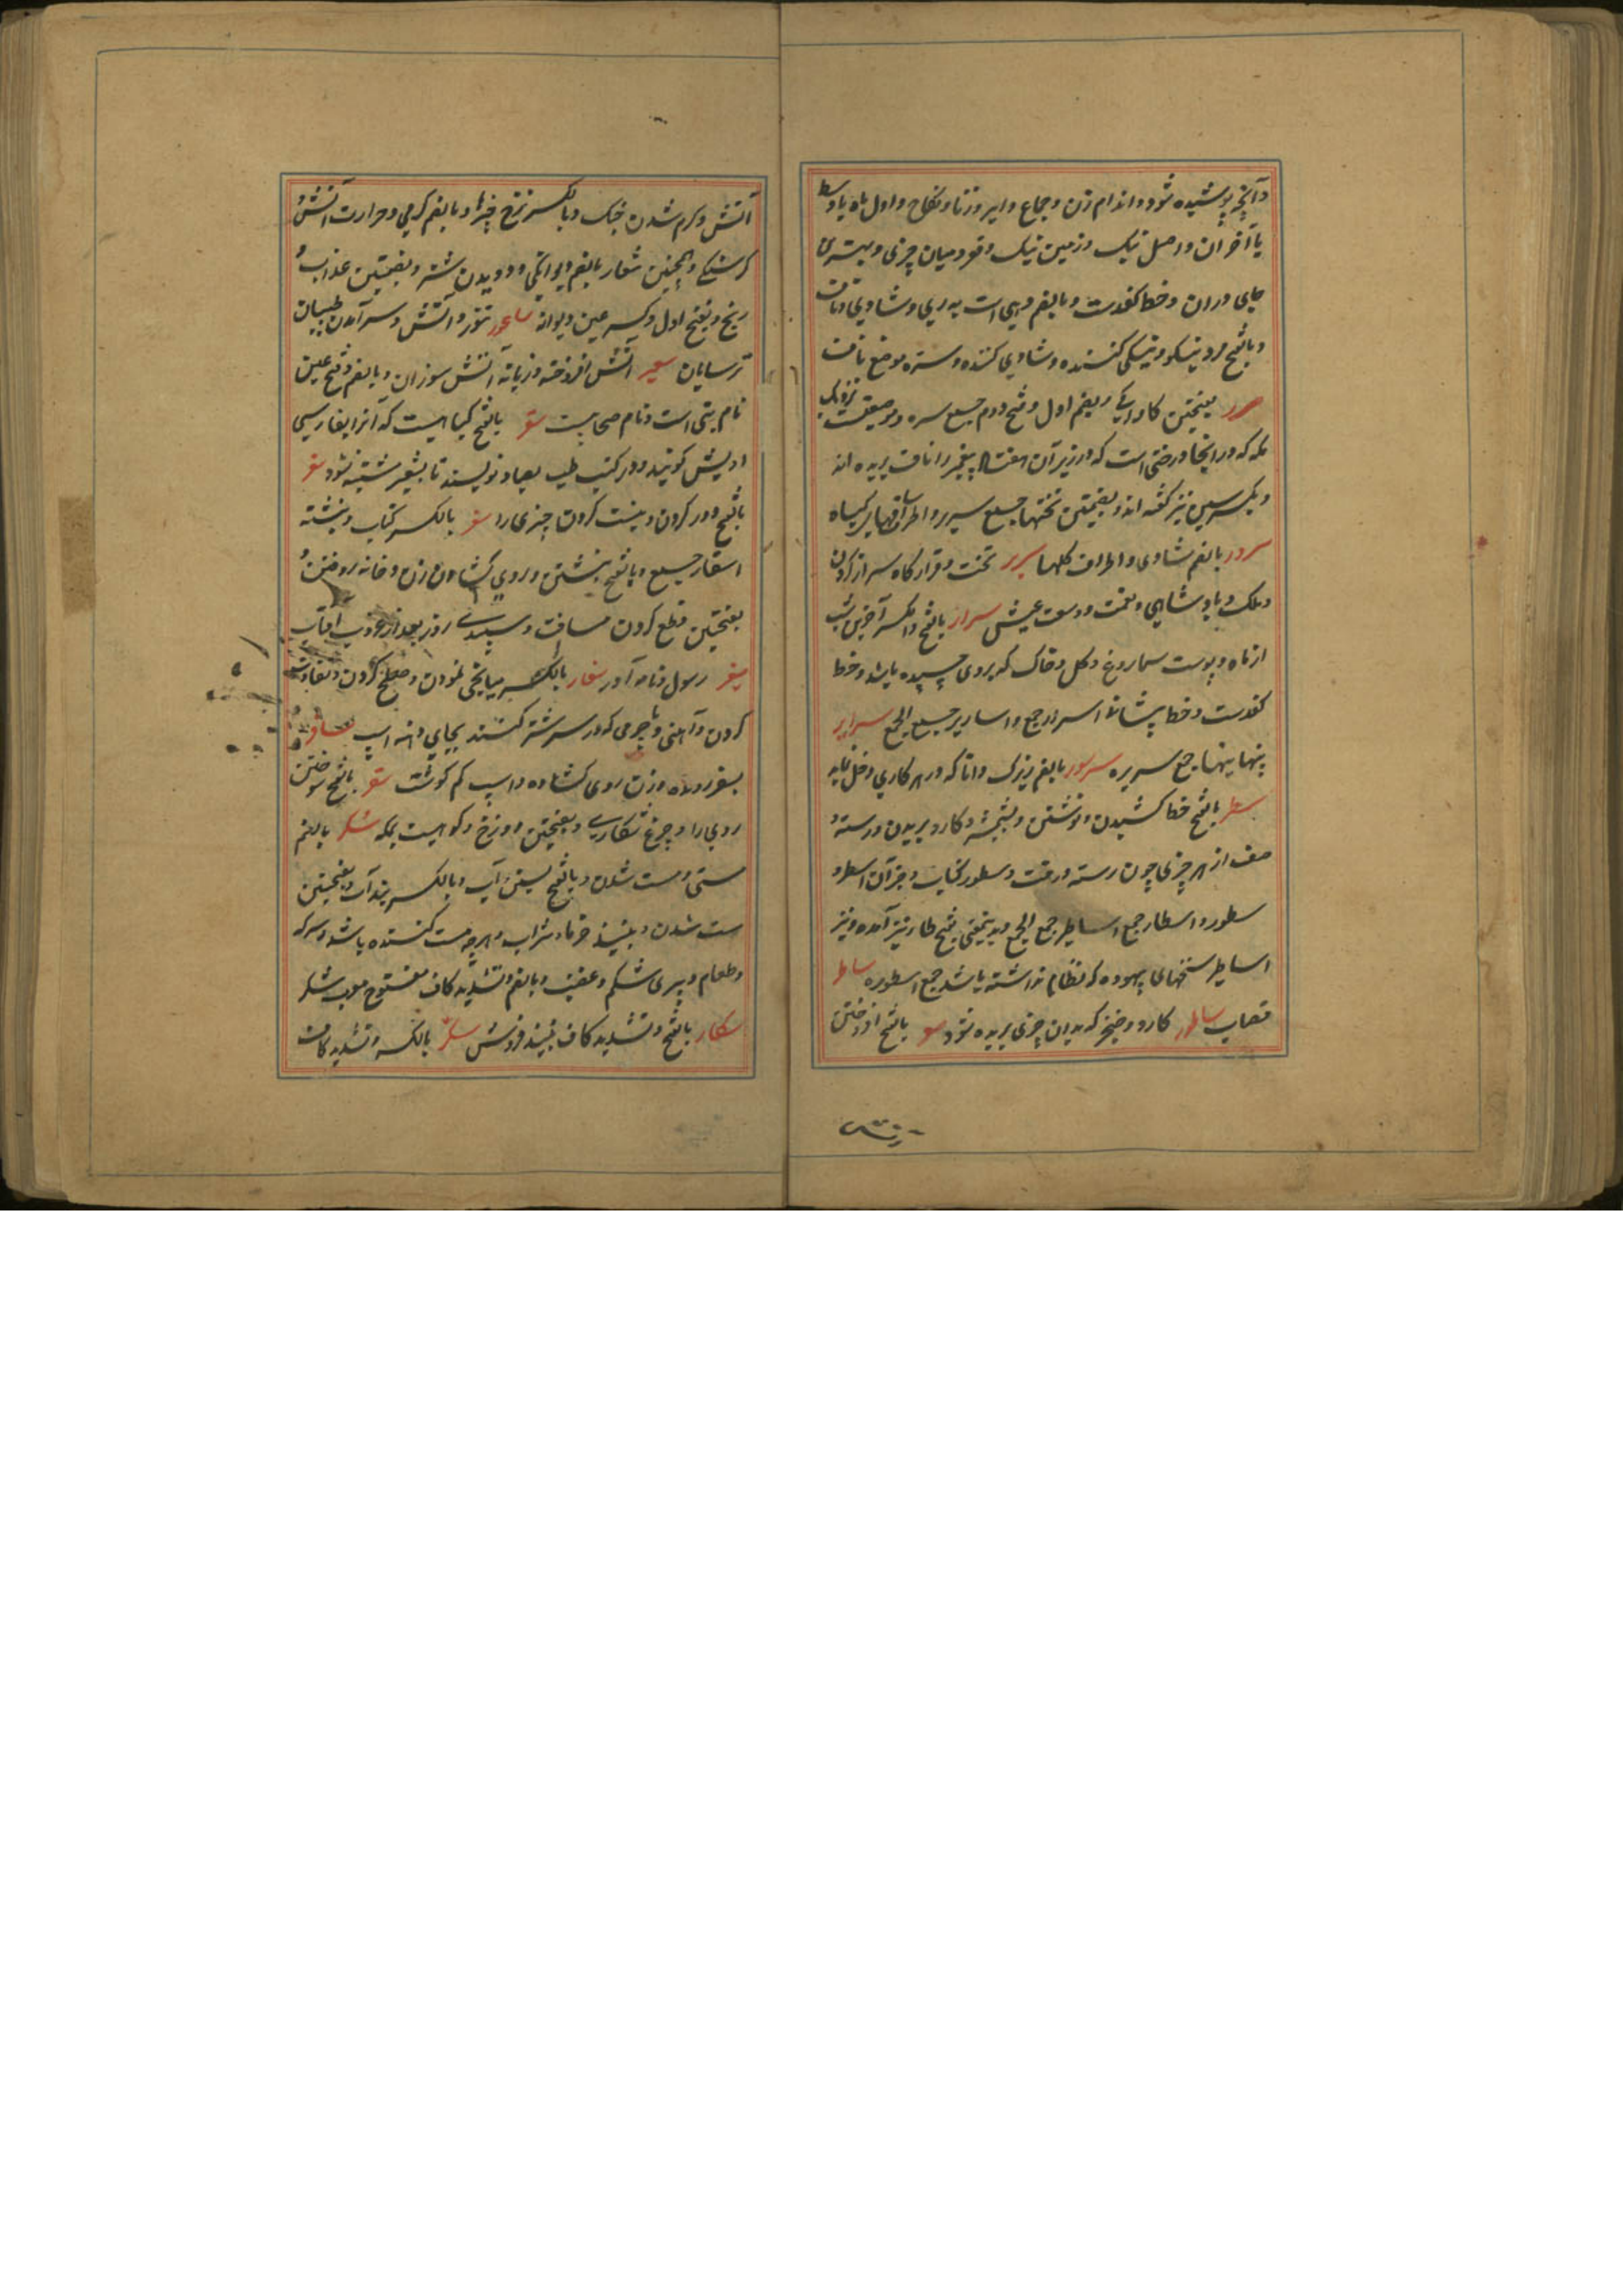 و آنچه پوشیده شود و اندام زن و جماع و ایر و زنا و نکاح و اول ماه یا وسط
یا آخر آن و اصل نیک و زمین نیک و قعود میان چیزی و بهترین
جای وران و خط کفدست و بالضم دهی است به ری و شادی و ناف
و بالفتح مرد نیکو و نیکی کننده و شادی کننده و سره موضع نافت
سرر بفتحتین کاواکی و بضم اول و فتح دوم جمع سره و موضعیست نزدیک
مکه که در انجا درختی است که در زیر آن هفتاد پیغمبر را ناف بریده اند
و بکسر سین نیز گفته اند و بضمتین تختها جمع سریر و اطراف ساقهای گیاه
سرور بالضم شادی و اطراف گلها سریر تخت و قرارگاه سر از گردن
و ملک و پادشاهی و نعمت و وسعت عیش سرار بالفتح و الکسر آخرین شب
از ماه و پوست سماروغ و گل و خاک که بروی چسپیده باشد و خط
کفدست و خط پیشانی اسرار جمع و اساریر جمع الجمع سرایر
پنهانیها جمع سریره سرسور بالضم زیرک و دانا که در هر کاری دخل نماید
سطر بالفتح خط کشیدن و نوشتن و نبشته و کارد بریدن و رسته و
صف از هر چیزی چون رسته درخت و سطور کتاب و جز آن اسطر و
سطور و اسطار جمع اساطیر جمع الجمع و بدینمعنی بفتح طا نیز آمده و نیز
اساطیر سخنهای بیهوده که نظام نداشته باشد جمع اسطوره ساطر
قصاب ساطور کارد و خنجر که بدان چیزی بریده شود سعر بالفتح افروختن
آتش و گرم شدن جنگ و بالکسر نرخ چیزها و بالضم گرمی و حرارت آتش و
گرسنگی و همچنین سعار بالضم دیوانگی و دویدن شتر و بضمتین عذاب و
رنج و بفتح اول و کسر عین دیوانه ساعور تنور و آتش و سرآمدن طبیبان
ترسایان سعیر آتش افروخته و زبانه آتش سوزان و بالضم و فتح عین
نام بتی است و نام صحابیست سعتر بالفتح گیاهیست که آنرا بفارسی
اویش گویند و در کتب طب بصاد نویسند تا بشعیر مشتبه نشود سفر
بالفتح دور کردن و نیست کردن چیزی را سفر بالکسر کتاب و نبشته
اسفار جمع و بالفتح نبشتن و روی گشادن زن و خانه روفتن و
بفتحتین قطع کردن مسافت و سپیدی روز بعد از غروب افتاب
سفیر رسول و نامه آور سفار بالکسر میانجی نمودن و صلح کردن و سفارت
کردن و آهنی و یا چرمی که در سر شتر کنند بجای دهنه اسپ مسافر
بسفر رونده و زن روی گشاده و اسپ کم گوشت سقر بالفتح سوختن
روی را و چرغ شکاری و بفتحتین دوزخ و کوهیست بمکه سکر بالضم
مستی و مست شدن و بالفتح بستن آب و بالکسر بند آب و بفتحتین
مست شدن و نبیذ خرما و شراب و هر چه مست کننده باشد و سرکه
و طعام و پری شکم و غضب و بالضم و تشدید کاف مفتوح معرب شکر
سکار بالفتح و تشدید کاف نبیذ فروش سکیر بالکسر و تشدید کاف